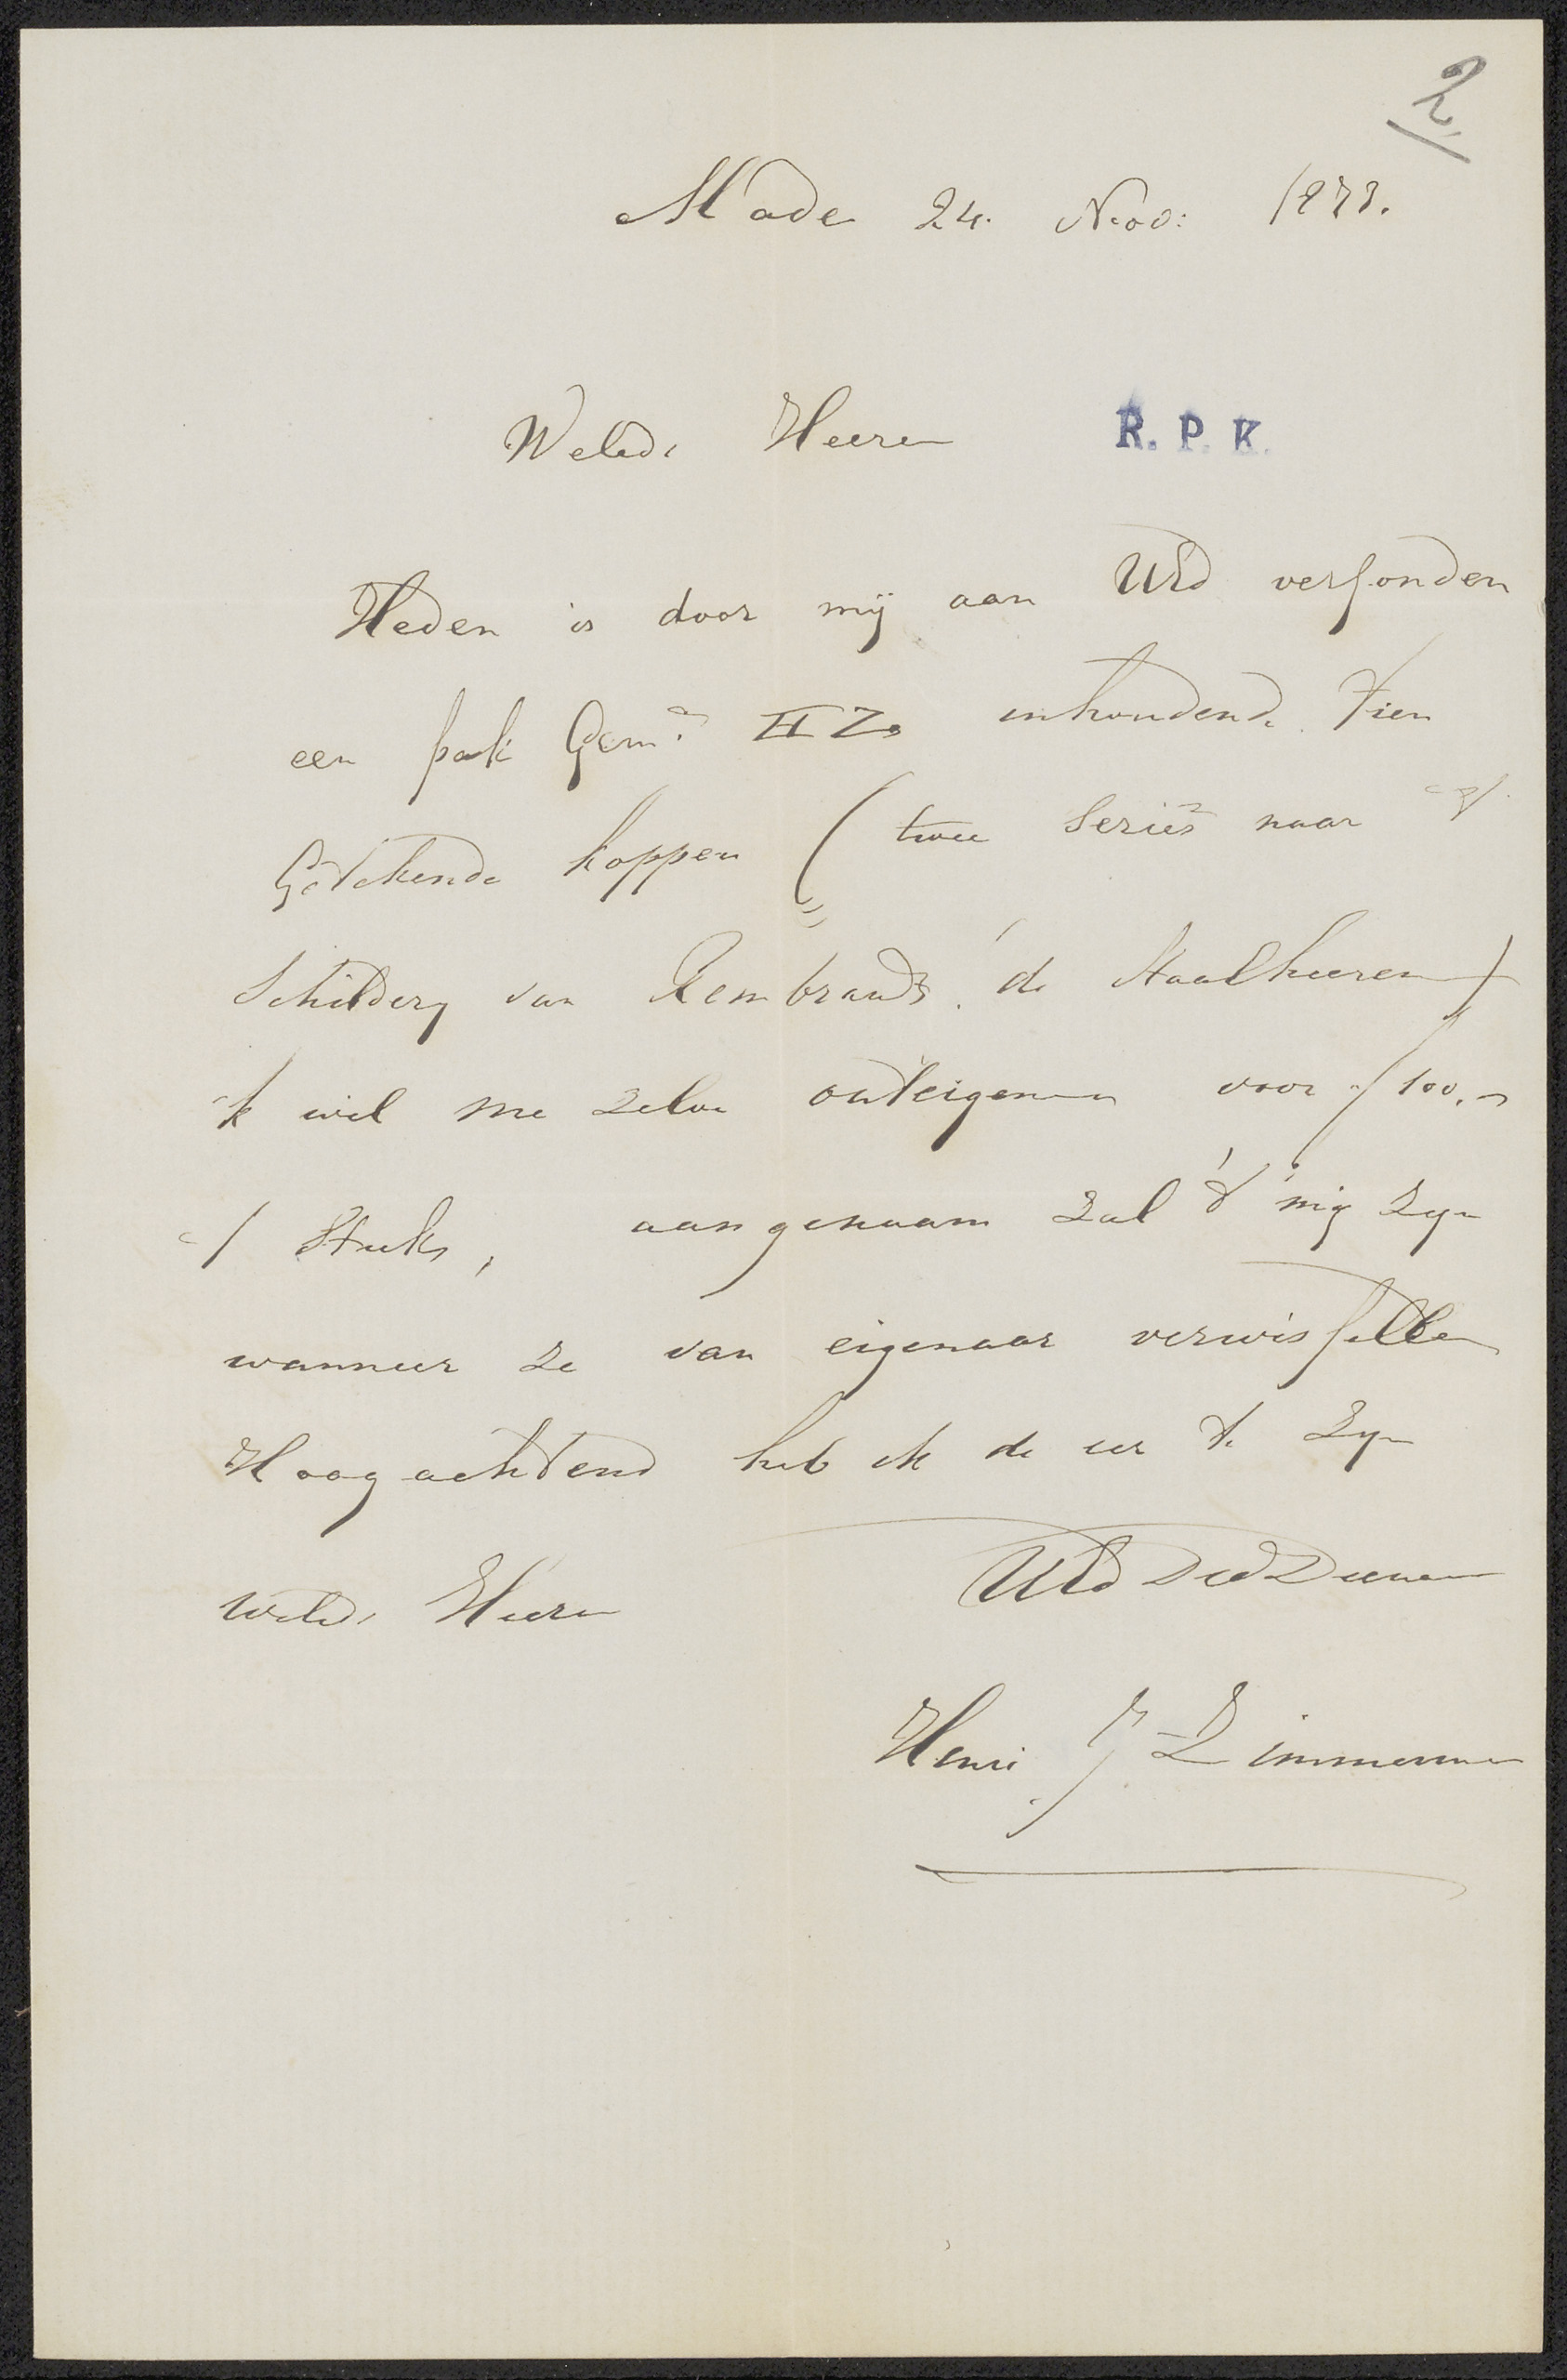 2
Made 24. Nov: 1873.
Weled. Heeren
R. P. K.
Heden is door mij aan UEd versonden
een pak Gem. HZ inhoudende tien
Getekende koppen (twee Seriës naar
Schildery van Rembrandt, de Staalheeren)
ik wil me zelve onteigenen voor f 100.-
Stuks, aangenaam zal 't mij zyn
wanneer ze van eigenaar verwisselen
Hoogachtend heb ik de eer te Zyn
Weled. Heeren
UEd Dw Dienaar
Henri J Zimmerman